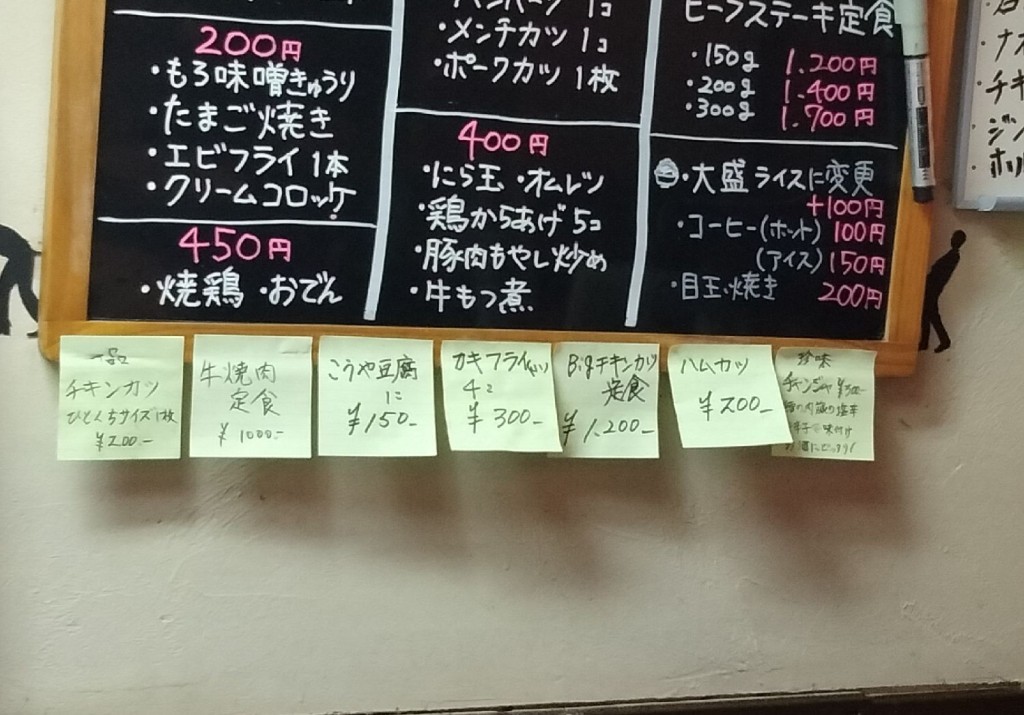 200円
・もろ味噌きゅうり
・たまご焼き
・エビフライ 1本
・クリームコロッケ
450円
・焼鶏 ・おでん
ハンバーグ 1コ
・メンチカツ 1コ
・ポークカツ 1枚
400円
・にら玉 ・オムレツ
・鶏からあげ 5コ
・豚肉もやし炒め
・牛もつ煮
ビーフステーキ定食
・150g 1.200円
・200g 1.400円
・300g 1.700円
・大盛ライスに変更
+100円
・コーヒー(ホット) 100円
(アイス) 150円
・目玉焼き 200円
一品
チキンカツ
ひとくちサイズ1枚
¥200-
牛焼肉
定食
¥1000-
こうや豆腐
に
¥150-
カキフライ
4コ
¥300-
Bigチキンカツ
定食
¥1.200-
ハムカツ
¥200-
珍味
チャンジャ
ナス
チキ